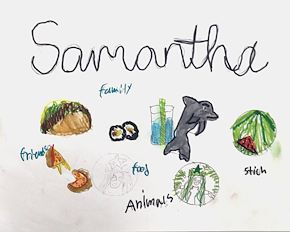 Samantha
Family
friends
food
Animals
stich